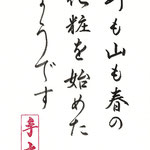 も山も春の
化粧を始めた
ようです